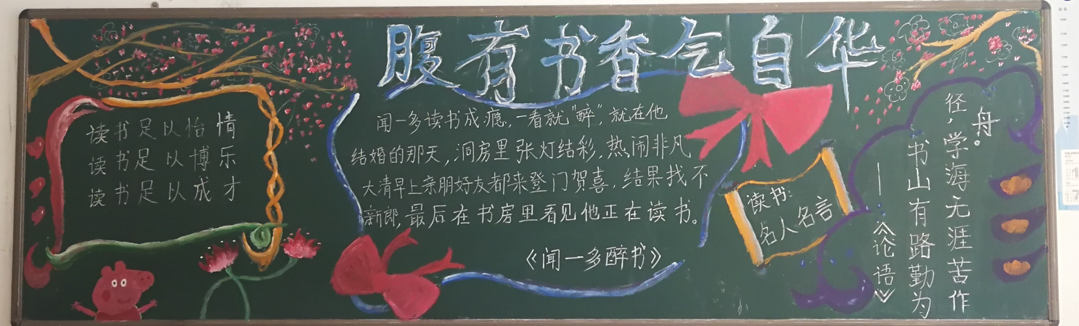 腹有书香气自华
读书足以怡情
读书足以博乐
读书足以成才
闻一多读书成瘾,一看就“醉”,就在他
结婚的那天,洞房里张灯结彩,热闹非凡
大清早上亲朋好友都来登门贺喜,结果找不
新郎,最后在书房里看见他正在读书。
《闻一多醉书》
读书:
名人名言
舟。
径,学海无涯苦作
书山有路勤为
——《论语》